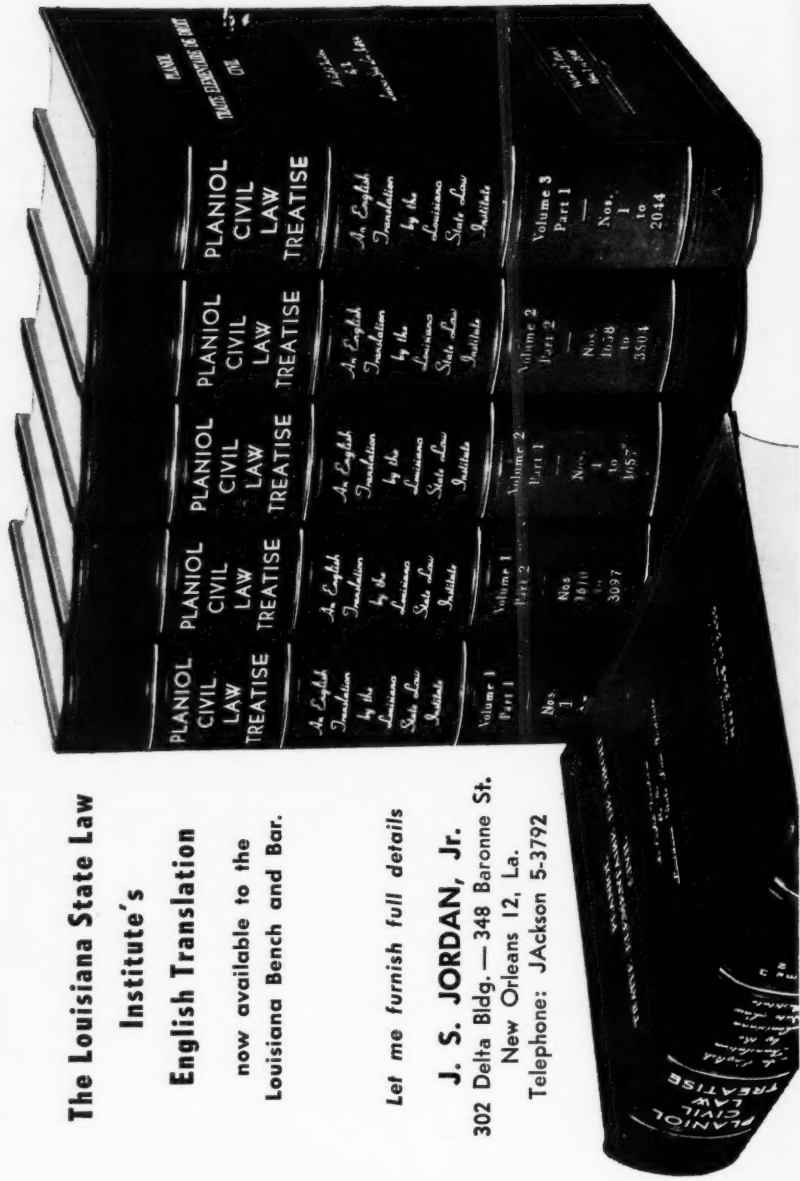 The Louisiana State Law
Institute's
English Translation
now available to the
Louisiana Bench and Bar.
Let me furnish full details
J. S. JORDAN, Jr.
302 Delta Bldg. — 348 Baronne St.
New Orleans 12, La.
Telephone: JAckson 5-3792
PLANIOL
CIVIL
LAW
TREATISE
An English
Translation
by the
Louisiana
State Law
Institute
Volume 1
Part 1
Nos.
1
PLANIOL
CIVIL
LAW
TREATISE
An English
Translation
by the
Louisiana
State Law
Institute
Volume 1
Part 2
Nos
3097
PLANIOL
CIVIL
LAW
TREATISE
An English
Translation
by the
Louisiana
State Law
Institute
Volume 2
Part 1
—
Nos.
1
to
PLANIOL
CIVIL
LAW
TREATISE
An English
Translation
by the
Louisiana
State Law
Institute
Volume 2
Part 2
—
Nos.
1658
to
3504
PLANIOL
CIVIL
LAW
TREATISE
An English
Translation
by the
Louisiana
State Law
Institute
Volume 3
Part 1
—
Nos.
1
to
2044
PLANIOL
TRAITE ELEMENTAIRE DE DROIT
CIVIL
PLANIOL
CIVIL
LAW
TREATISE